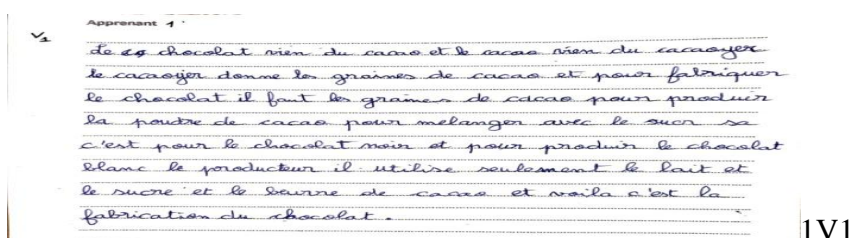 Apprenant 1
V1
Le chocolat vien du cacao et le cacao vien du cacaoyer
le cacaoyer donne les graines de cacao et pour fabriquer
le chocolat il faut les graines de cacao pour produir
la poudre de cacao pour melanger avec le sucr sa
c'est pour le chocolat noir et pour produir le chocolat
blanc le producteur il utilise seulement le lait et
le sucre et le beurre de cacao et voila c'est la
fabrication du chocolat.
1V1